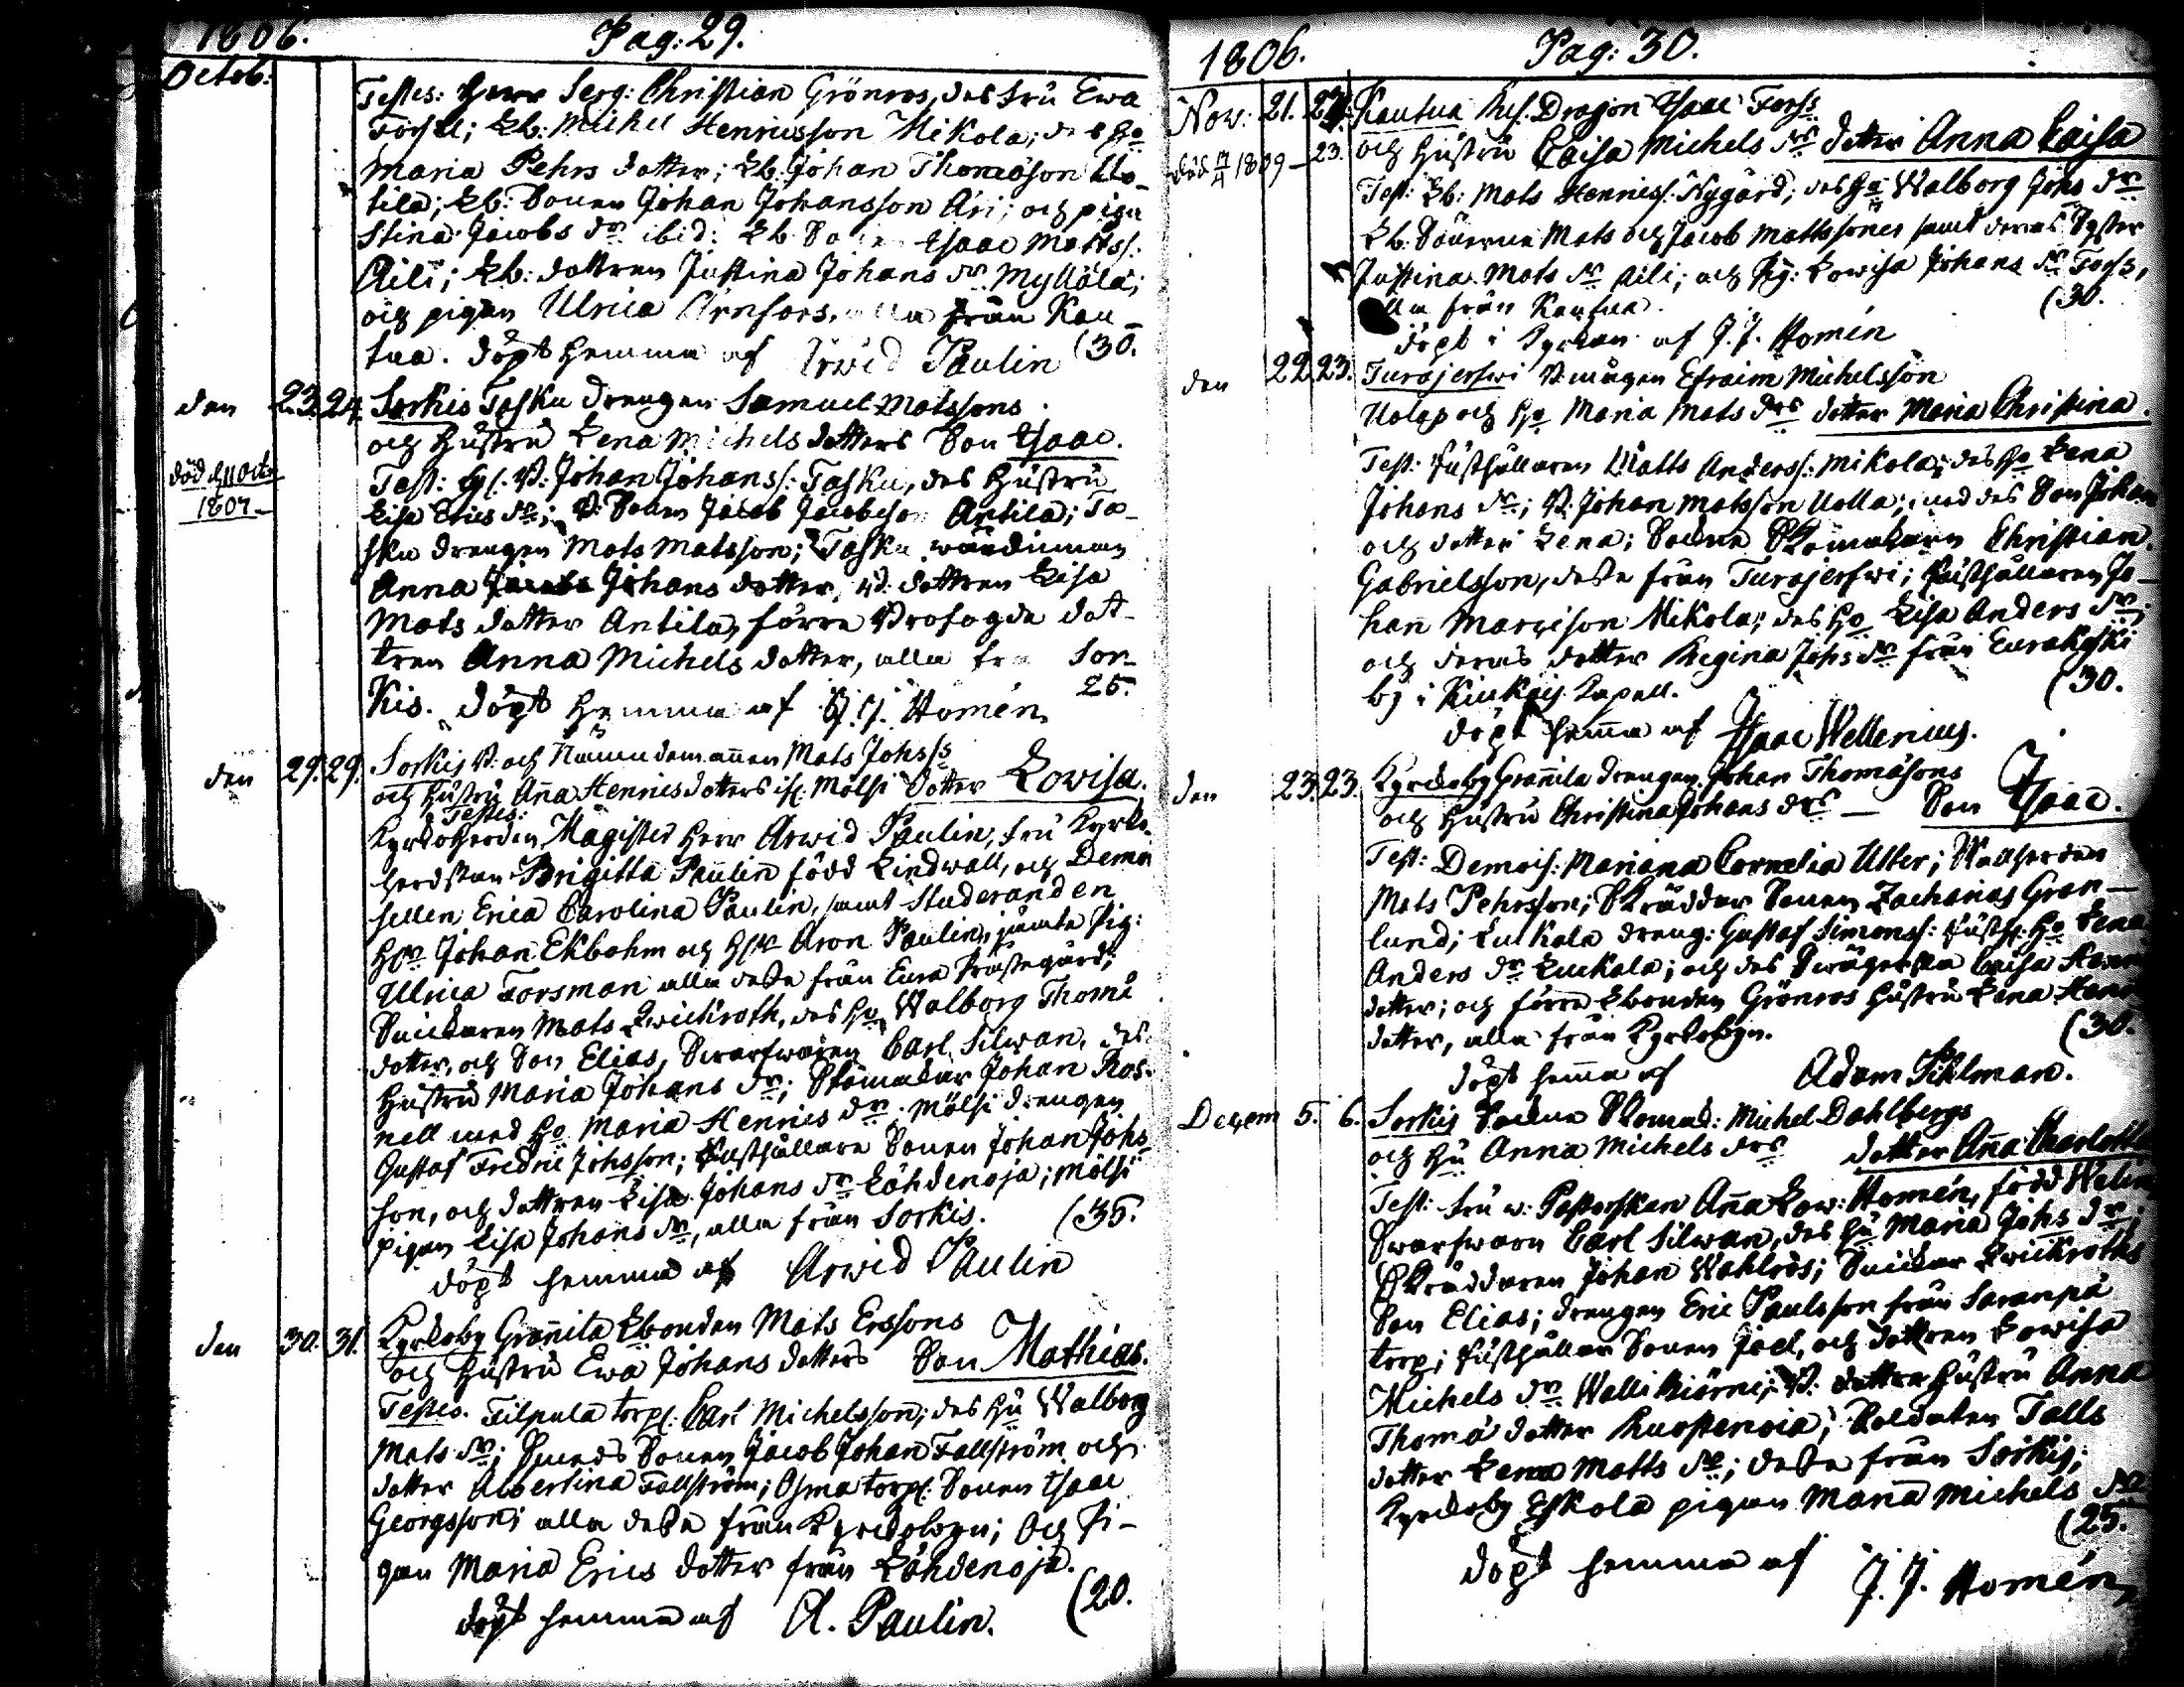 1806. Pag: 29.
Octob:
Testes: Herr Serg: Christian Grönros, des fru Ewa
Forsell; Lb: Michel Henricsson Mikola; des Ho
Maria Pehrs dotter; Lb: Johan Thomasson Uo-
tila; Lb: Sonen Johan Johansson Äri; och pigan
Stina Jacobs dr ibid: Lb. Sonen Isaac Matss:
Äili; Lb: dottren Justina Johans dr Myllölä;
och pigan Ulrica Arnfors, alla från Kau-
tua. döpt hemma af Arwid Paulin (30.
den 23. 24. Sorkis Tasku drengen Samuel Matssons
och Hustru Lena Michels dotters Son Isaac.
död d 11 Octo
1807
Test: V: Johan Johanss: Tasku, des Hustru
Lisa Erics dr; V: Sonen Jacob Jacobsson Antila; Ta-
sku drengen Mats Matsson; Tasku wärdinnan
Anna Johans dotter, V: dottren Lisa
Mats dotter Antila, förre Profogde dot-
tren Anna Michels dotter, alla fr Sor-
kis. döpt hemma af J. J. Homén 25.
den 29. 29. Sorkis V. och Nämndemannen Mats Johss:s
och Hustru Anna Henricsdotters Mölsi dotter Lowisa.
Testes:
Kyrkoherden Magister Herr Arwid Paulin, fru Kyrko-
herdskan Brigitta Paulin född Lindwall, och Demoi
sellen Erica Carolina Paulin, samt Studeranden
Hr Johan Ekbohm och Hr Aron Paulin, jämte Pig:
Ulrica Forsman alla desse från Eura Prästegård;
Snickaren Mats Qwickroth, des Ho Walborg Thoma
dotter, och Son Elias, Swarfwaren Carl Silwan, des
Hustru Maria Johans dr; Skomakar Johan Ros-
nell med Ho Maria Henrics dr. Mölsi drengen
Gustaf Fredric Johsson; Rusthållare Sonen Johan Johs
son, och dottren Lisa Johans dr Löhdenoja; Mölsi
pigan Lisa Johans dr, alla från Sorkis. (35.
döpt hemma af Arwid Paulin
den 30. 31. Kyrkoby Grannila Lbonden Mats Erssons
och Hustru Ewa Johans dotters Son Mathias.
Testes. Filpula torp: Carl Michelsson; des Hu Walborg
Mats dr; Smeds Sonen Jacob Johan Fallström och
dotter Albertina Fallström; Osma torp: Sonen Isaac
Georgsson; alla desse från Kyrkobyn; och Pi-
gan Maria Erics dotter från Löhdenoja.
döpt hemma af A. Paulin. (20.
1806. Pag: 30.
Nov: 21. 23. Kautua Res. Dragon Isaac Forss
och Hustru Caisa Michels drs dotter Anna Caisa
död 1809
Test: Lb: Mats Henricss: Nygård; des Ho Walborg Johs dr
Lb: Sönerne Mats och Jacob Mattssöner samt deras Syster
Justina Mats dr Äili; och Pig: Lowisa Johans dr Forss,
alla från Kautua. (30.
döpt i Kyrkan af J. J. Homén
den 22. 23. Turajerfwi V. mågen Efraim Michelsson
Uolap och Ho Maria Mats drs dotter Maria Christina.
Test: Rusthållaren Matts Anderss: Mikola; des Ho Lena
Johans dr; V: Johan Matsson Uolla; med des Son Johan
och dotter Lena; Sockne Skomakarn Christian
Gabrielsson, desse från Turajerfwi; Rusthållaren Jo-
han Marcisson Mikola; des Ho Lisa Anders dr;
och deras dotter Regina Johs dr från Eurakoski
by i Kiukais Kapell. (30.
döpt hemma af Isaac Wellenius.
den 23. 23. Kyrkoby Grannila drengen Johan Thomasons
och Hustru Christina Johans drs — Son Isaac.
Test: Demois: Mariana Cornelia Utter; Wallherden
Mats Pehrsson; Skräddar Sonen Zacharias Gran-
lund; Luckala dreng: Gustaf Simonss: Rusth: Ho Lena
Anders dr Luckala; och des Swägerska Caisa Henri
dotter; och förre Lbonden Grönros Hustru Lena Henri
dotter, alla från Kyrkobyn. (30.
döpt hemma af Adam Pihlman.
Decem 5. 6. Sorkis Sockne Skomak: Michel Dahlbergs
och Hu Anna Michels drs dotter Anna Charlotta
Test: Fru v. Pastorskan Anna Low: Homén, född Welin
Swarfwarn Carl Silwan, des Hu Maria Johs dr;
Skräddaren Johan Wahlros; Snickar Qwickroths
Son Elias; drengen Eric Paulsson från Saranpä
torp; Rusthållar Sonen Joel, och dottren Lowisa
Michels dr Wallibiörni; V: dotter Hustru Anna
Thoma dotter Ruostenoia; Soldaten Talls
dotter Lena Matts dr; desse från Sorkis;
Kyrkoby Eskola pigan Maria Michels dr
(25.
döpt hemma af J. J. Homén